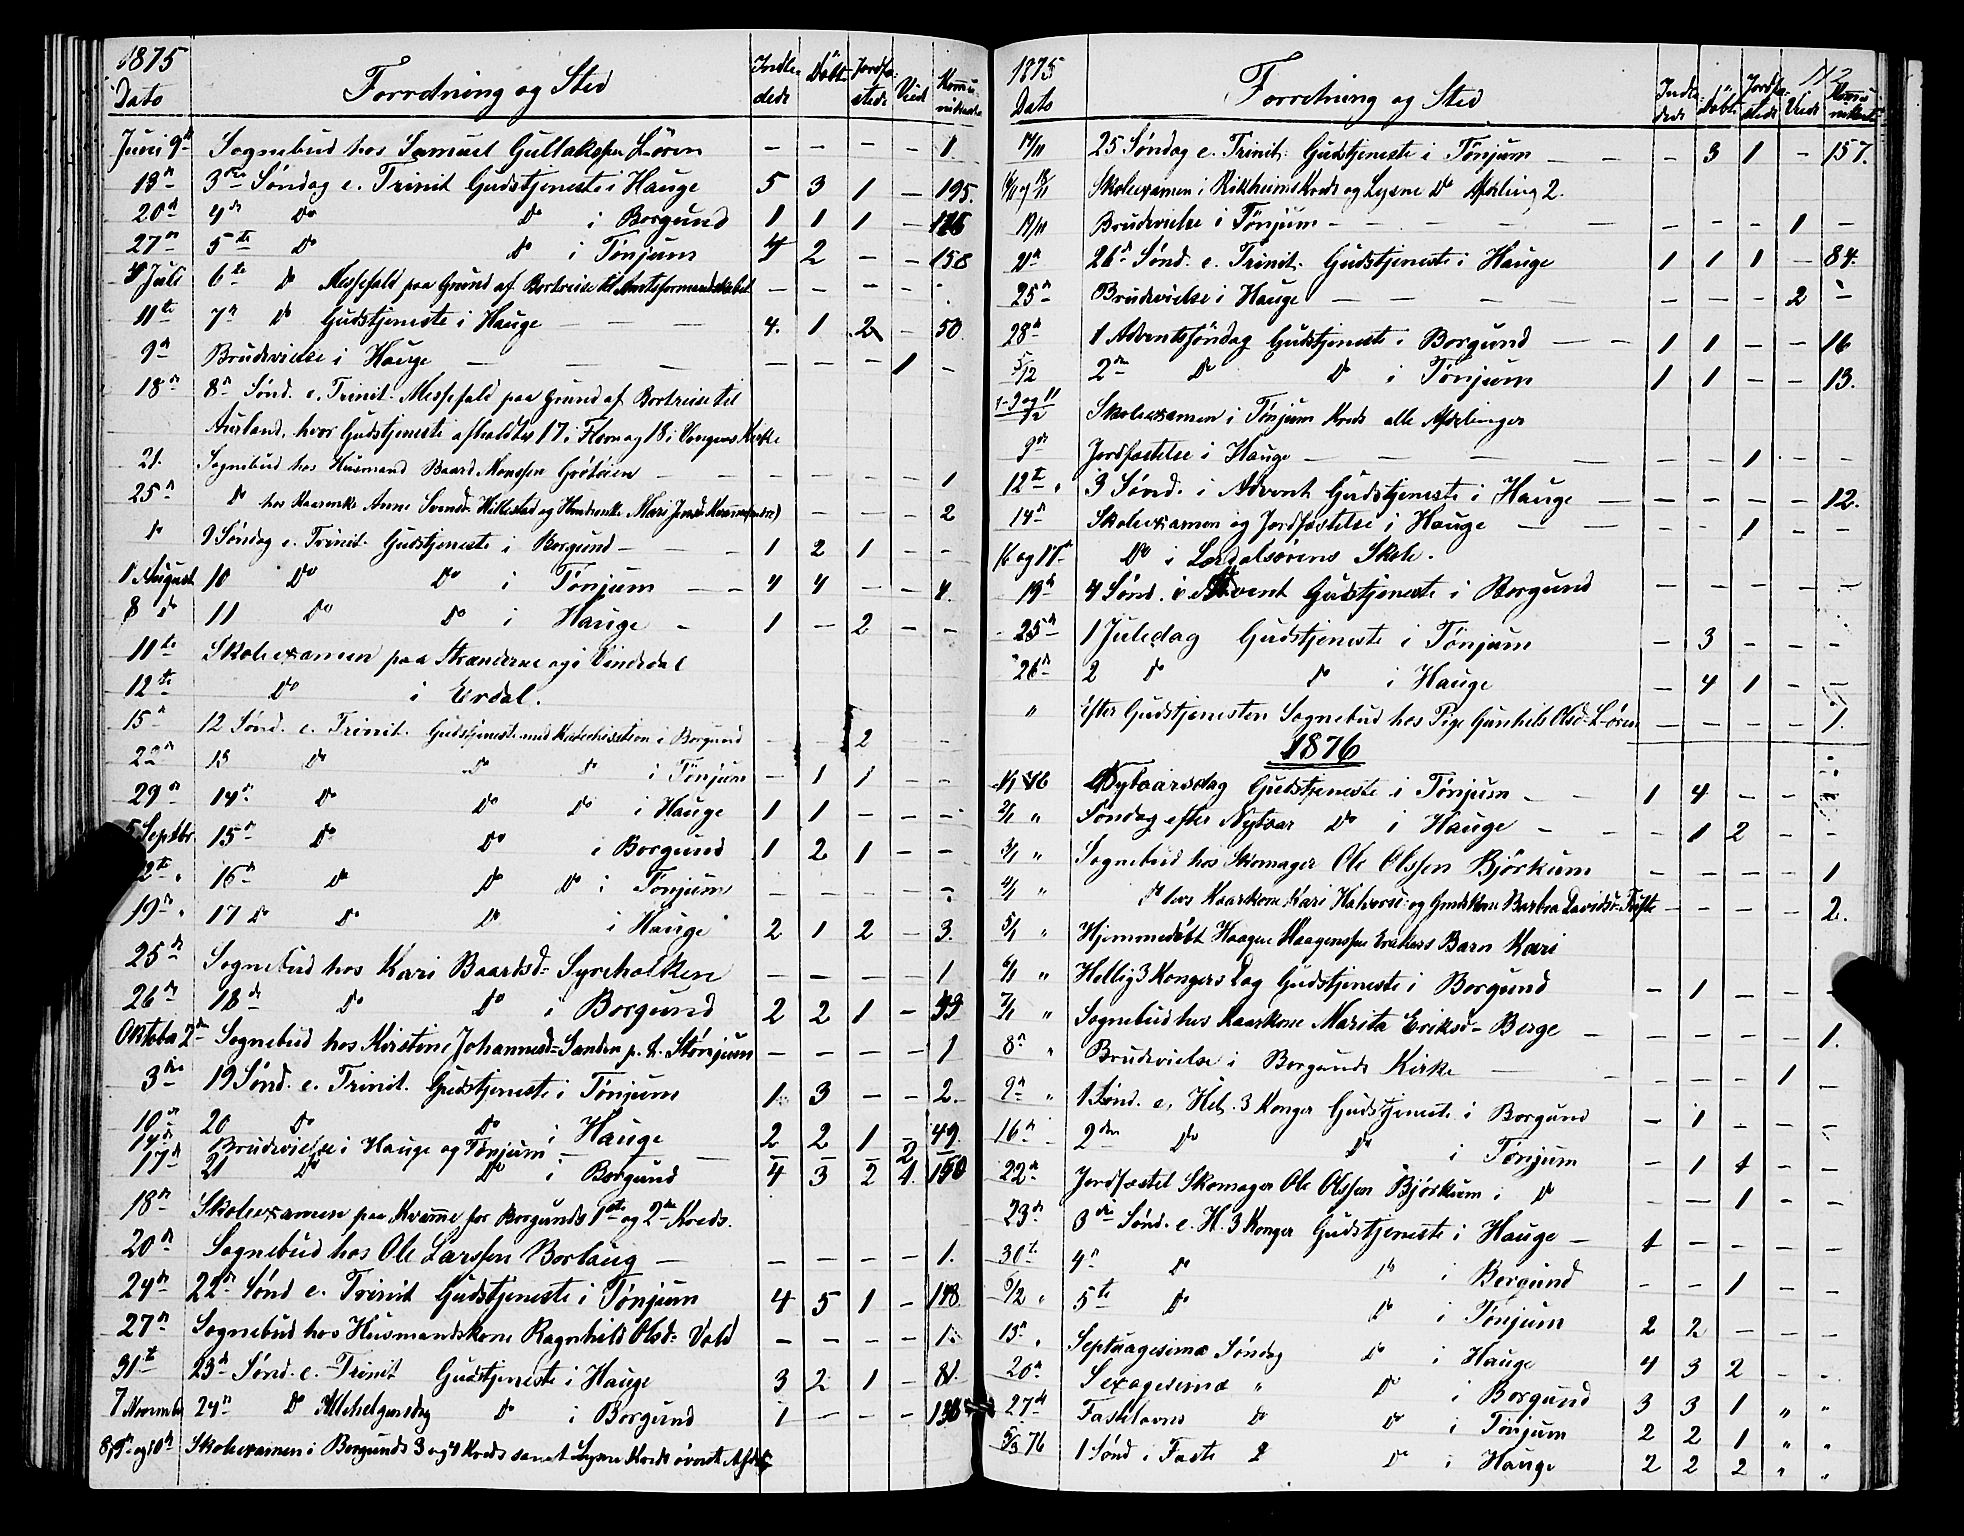 1875
Dato Forretning og Sted Indle- dede Döbte Jordfæ- stede Viede Kommu- nikanter
Juni 9de Sognebud hos Samuel Gullakssen Lören - - - - 1.
13de 3die Søndag e. Trinit Gudstjeneste i Hauge 5 3 1 - 195.
20de 4de Do Do i Borgund 1 1 1 -
27de 5te Do Do i Tønjum 4 2 - - 158
4 Juli 6te Do Messefald paa Grund af Bortreise til Amtsformandskabet - - - - -
11te 7de Do Gudstjeneste i Hauge 4. 1 2 - 50.
9de Brudevielse i Hauge - - - 1 -
18de 8de Sønd. e. Trinit. Messefald paa grund af Bortreise til
Aurland, hvor Gudstjeneste afholdtes 17. i Flaam og 18 i Vangens Kirke
21. Sognebud hos Husmand Baard Monssen Grötöien - - - - 1
25de Do hos Kaarenke Anne Svensd. Hillestad og Mari Jensd. - - - - 2
Do 9 Søndag e. Trinit. Gudstjeneste i Borgund 1 2 1 - -
1 August 10 Do Do i Tønjum 4 4 - - 4.
8 Do 11 Do Do i Hauge 1 - 2 - -
11te Skoleexamen paa Strænderne og i Vindedal
12te Do i Erdal.
15de 12 Sønd. e. Trinit. Gudstjeneste med Katechisation i Borgund - - 2 - -
22de 13 Do Do Do i Tønjum - 1 1 - -
29de 14de Do Do Do i Hauge 1 1 - - -
5 Septbr. 15de Do Do i Borgund 1 2 1 - -
12te 16de Do Do Do i Tønjum - - - - -
19de 17 de Do Do i Hauge 2 1 2 - 3.
25de Sognebud hos Kari Baardsd. Syrehakken - - - - 1
26de 18de Do Do i Borgund 2 2 1 -
Oktober 2den Sognebud hos Kirstine Johannesd. Sanden p. t. Stönjum - - - - 1
3die 19 Sønd. e. Trinit. Gudstjeneste i Tønjum 1. 3 - - 2.
10de 20 Do Do i Hauge 2 2 1 - 49.
14de Brudevielse i Hauge og Tönjum - - - 2 -
17de 21 Do Do i Borgund 4 3 2 1. 150
18de Skoleexamen paa Kvamme for Borgunds 1ste og 2den Kreds.
20de Sognebud hos Ole Larssen Borlaug - - - - 1.
24de 22de Sønd e. Trinit Gudstjeneste i Tønjum 4 5 1 - 118
27de Sognebud hos Husmandskone Ragnhild Olsd. Vold - - - - 1.
31te 23de Sønd. e. Trinit Gudstjeneste i Hauge 3 2 1 - 81.
7 November 24de Do Allehelgensdag Do i Borgund 1 - - - 136
8, 9de og 10de Skoleexamen i Borgunds 3 og 4 Kreds samt Lysne Kreds øverste Afdeling
1875 112
Dato Forretning og Sted Indle- dede Døbte Jordfæ- stede Viede Kommu- nikanter
14/11 25 Søndag e. Trinit. Gudstjeneste i Tønjum - 3 1 - 157.
16/11 og 18/11 Skoleexamen i Rikheims Kreds og Lysne Do Afdeling 2.
19/11 Brudevielse i Tønjum - - - 1 -
21de 26de Sønd. e. Trinit. Gudstjeneste i Hauge 1 1 1 - 84.
25de Brudevielse i Hauge - - - 2 -
28de 1 Adventssöndag Gudstjeneste i Borgund 1 1 - - 16
5/12 2den Do Do i Tønjum 1 1 - - 13.
Skoleexamen i Tønjum Kreds alle Afdelinger
9de Jordfæstelse i Hauge - - 1 - -
12te 3 Sønd. i Advent Gudstjeneste i Hauge - - - - 12.
14de Skoleexamen og Jordfæstelse i Hauge - - 1 - -
16 og 17de Do i Lærdalsörens Skole.
19de 4 Sønd. i Advent Gudstjeneste i Borgund - - - - -
25de 1 Juledag Gudstjeneste i Tønjum - 3 - - -
26de 2 Do Do i Hauge - 4 1 - -
" Efter Gudstjenesten Sognebud hos Pige Gunhild Olsd. Lören - - - - 1.
1876
1/1 76 Nytaarsdag Gudstjeneste i Tønjum 1 4 - - -
2/1 " Søndag efter Nytaar Do i Hauge - 1 2 - -
3/1 " Sognebud hos Skomager Ole Olssen Bjørkum - - - - 1
4/1 " Do hos Kaarkone Kari Halvorsd. og Gmdskone Barbra Davidsd. - - - - 2.
5/1 " Hjemmedöbt Haagen Haagenssen Barn Kari
6/1 " Hellig 3 Kongers Dag Gudstjeneste i Borgund - 1 - - -
7/1 " Sognebud hos Kaarkone Marita Eriksd. Berge - - - - 1.
8de " Brudevielse i Borgunds Kirke - - - 1 -
9de " 1 Sønd. e. Hel. 3 Konger Gudstjeneste i Borgund - 1 - - -
16de 2den Do Do i Tønjum - 1 1 - -
22de Jordfæstet Skomager Ole Olssen Björkum i Do - - 1 - -
23de 3die Sønd. e. H. 3 Konger Gudstjeneste i Hauge 1 - - - -
30te 4de Do Do i Borgund - - 1 - -
6/2 " 5te Do Do i Tønjum 2 2 - - -
13de " Septuagesima Søndag Do i Hauge 4 3 2 - -
20de Sexagesima " Do i Borgund 3 3 1 " "
27de Fastelavns Do Do i Tønjum 2 2 1 " "
5/3 76 1 Sønd i Faste Do i Hauge 2 2 2 " "